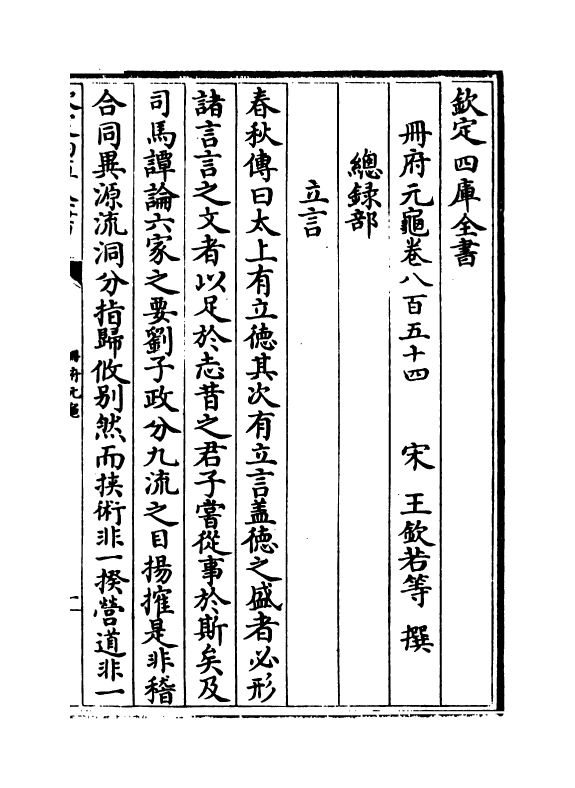 欽定四庫全書
冊府元龜卷八百五十四 宋 王欽若等 撰
總録部
立言
春秋傳曰太上有立德其次有立言葢德之盛者必形
諸言言之文者以足於志昔之君子嘗從事於斯矣及
司馬譚論六家之要劉子政分九流之目揚搉是非稽
合同異源流洞分指歸攸别然而挟術非一揆營道非一
冊府元龜